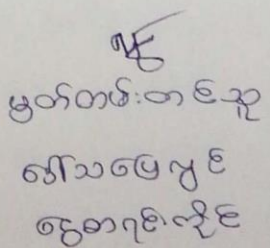 မှတ်တမ်းတင်သူ
ဒေါ်သမြေလွင်
ငွေစာရင်းကိုင်